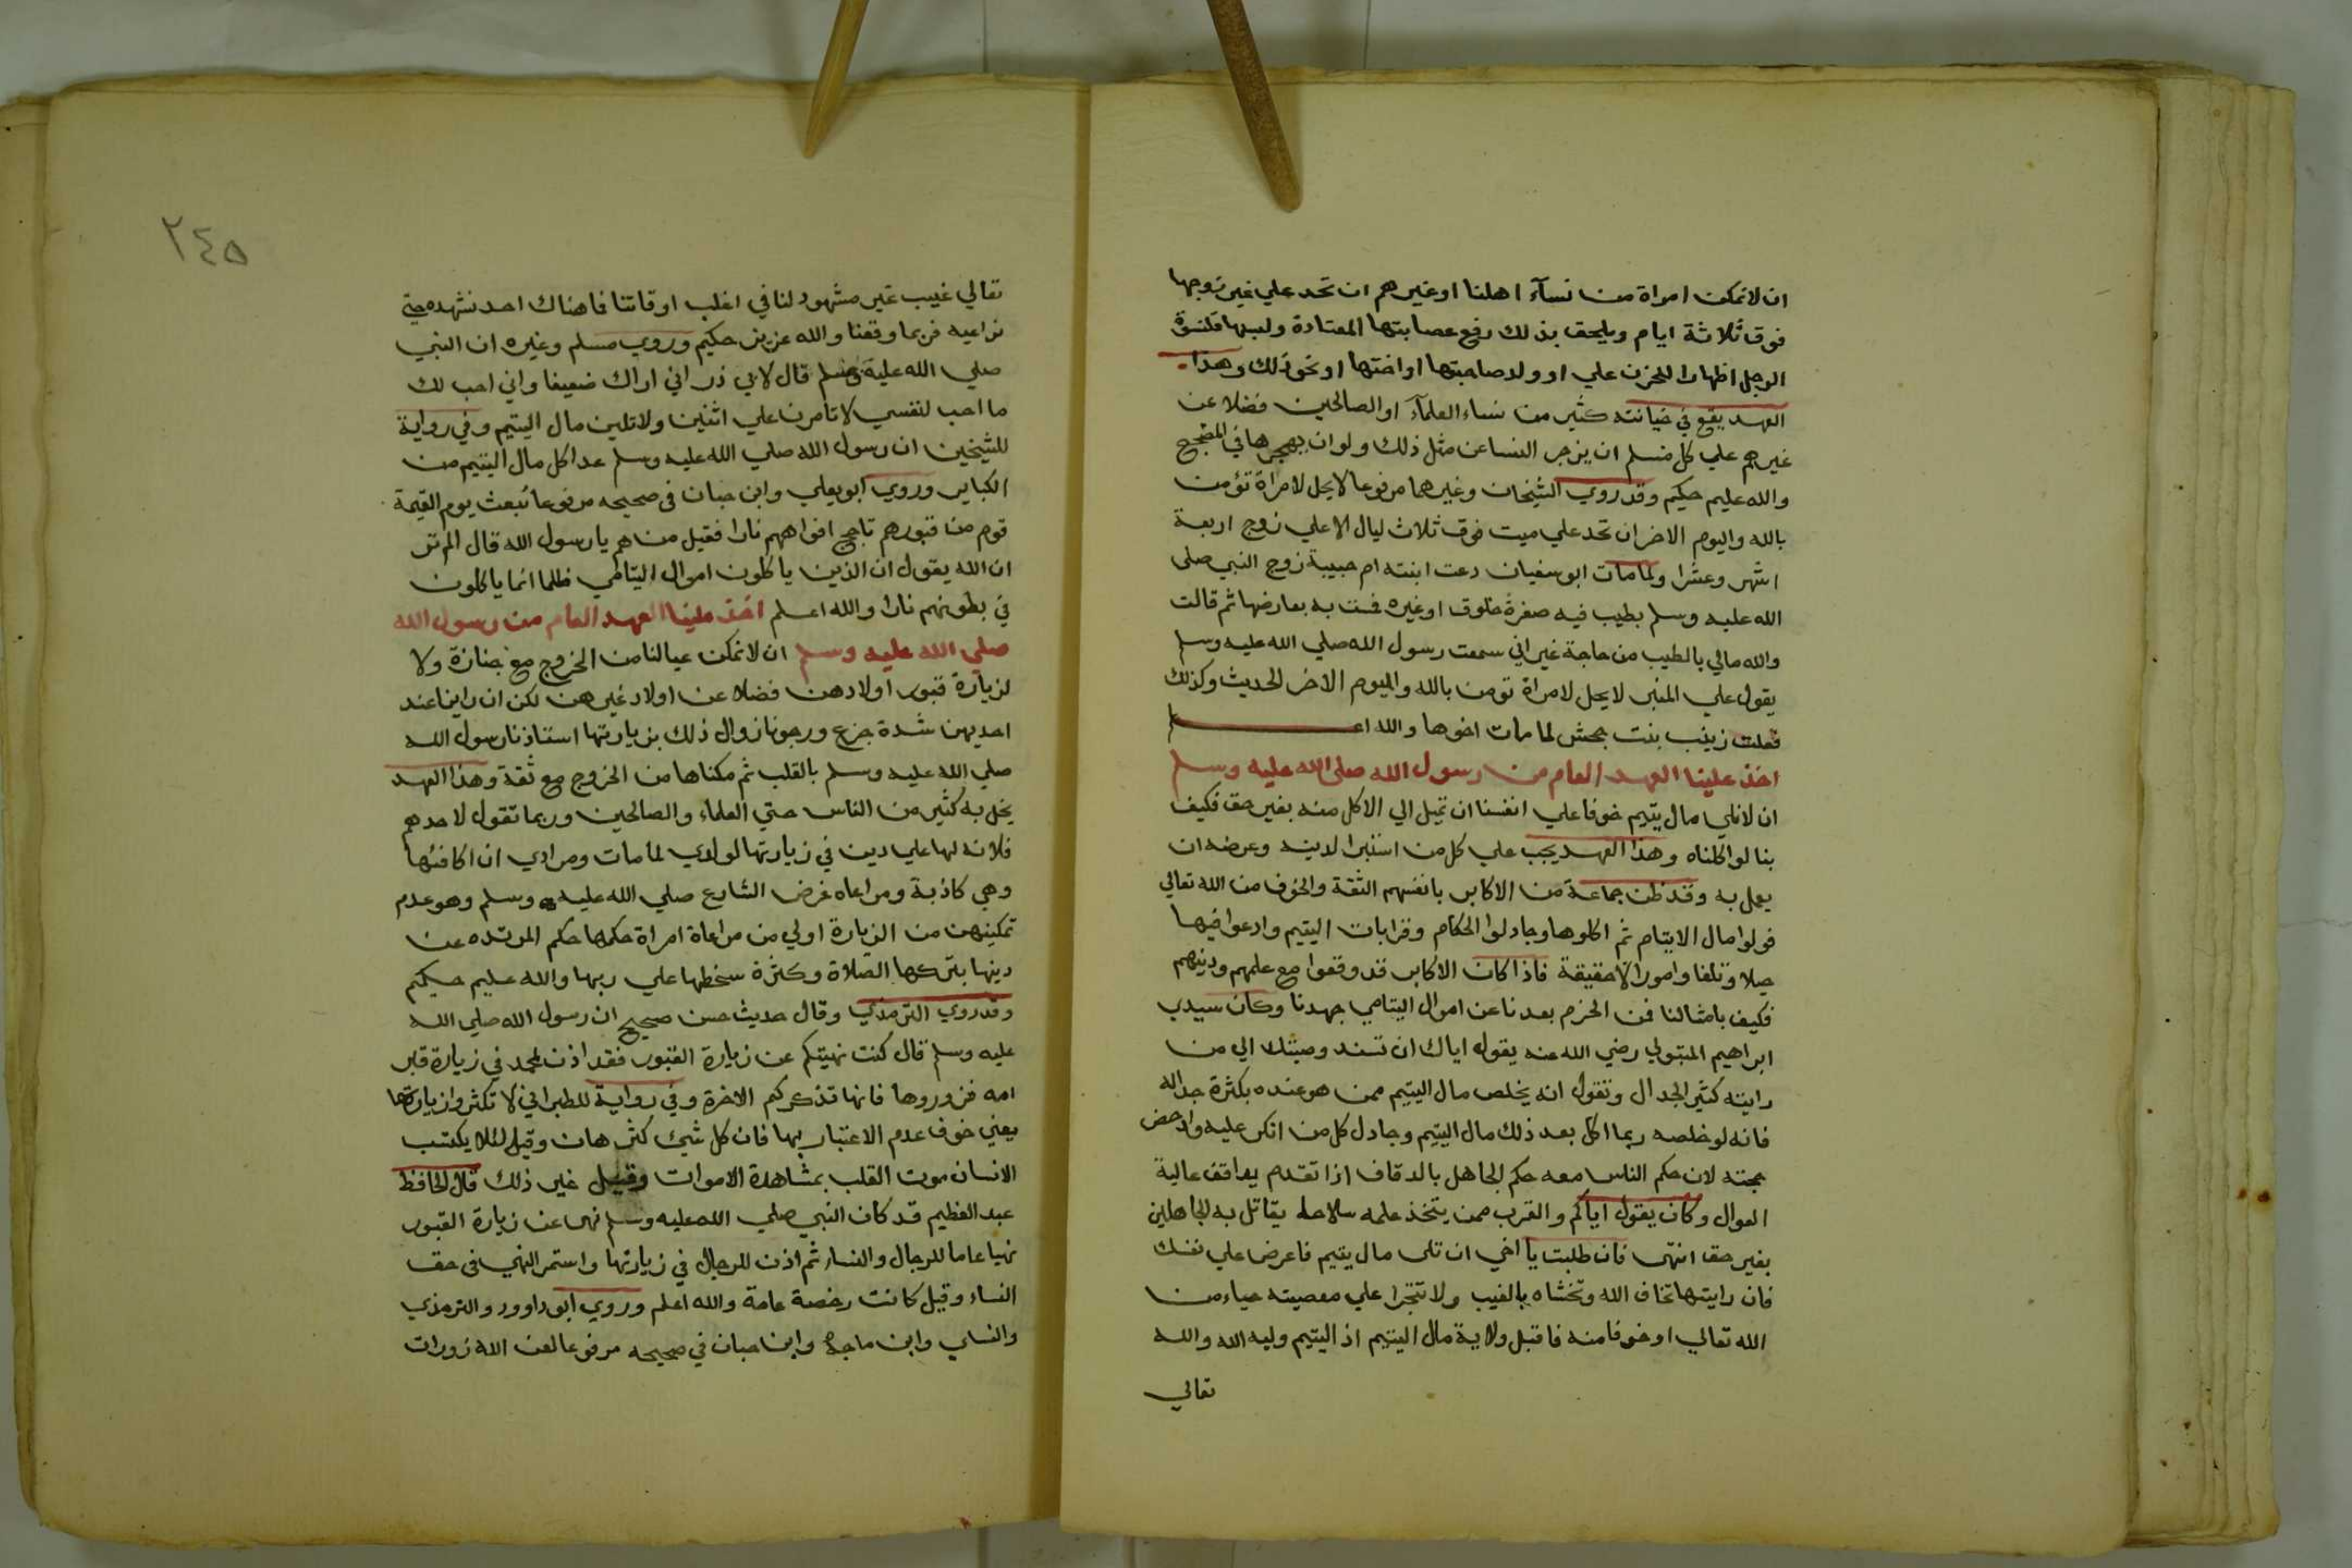 ان لا نمكن امراة من نسآء اهلنا او غيرهم ان تحد علي غير زوجها
فوق ثلاثة ايام ويلحق بذلك رفع عصابتها المعتادة ولبسها قلنسوة
الرجل اظهارا للحزن علي او ولد صاحبتها او اختها او نحو ذلك وهذا
العهد يقع في خيانته كثير من نساء العلمآء او الصالحين فضلا عن
غيرهم علي كل مسلم ان يزجر النسا عن مثل ذلك ولو ان يهجرها في المضجع
والله عليم حكيم وقد روي الشيخان وغيرهما مرفوعا لا يحل لامراة تؤمن
بالله واليوم الاخر ان تحد علي ميت فوق ثلاث ليال الا علي زوج اربعة
اشهر وعشرا ولما مات ابو سفيان دعت ابنته ام حبيبة زوج النبي صلى
الله عليه وسلم بطيب فيه صفرة خلوق او غيره فمست به بعارضها ثم قالت
والله مالي بالطيب من حاجة غير اني سمعت رسول الله صلي الله عليه وسلم
يقول علي المنبر لا يحل لامراة تومن بالله واليوم الاخر الحديث وكذلك
فعلت زينب بنت جحش لما مات اخوها والله اعلم
اخذ علينا العهد العام من رسول الله صلى الله عليه وسلم
ان لا نلي مال يتيم خوفا علي انفسنا ان تميل الي الاكل منه بغير حق فكيف
بنا لو اكلناه وهذا العهد يجب علي كل من استبرا لدينه وعرضه ان
يعمل به وقد ظن جماعة من الاكابر بانفسهم الثقة والخوف من الله تعالي
فولوا مال الايتام ثم اكلوها وجادلوا الحكام وقرابات اليتيم وادعوا فيها
حيلا وتلفا وامورا لا حقيقة فاذا كان الاكابر قد وقعوا مع علمهم ودينهم
فكيف بامثالنا فمن الحزم بعدنا عن اموال اليتامي جهدنا وكان سيدي
ابراهيم المتبولي رضي الله عنه يقول اياك ان تسند وصيتك الي من
رايته كثير الجدال وتقول انه يخلص مال اليتيم ممن هو عنده بكثرة جداله
فانه لو خلصه ربما اكل بعد ذلك مال اليتيم وجادل كل من انكر عليه وادحض
حجته لان حكم الناس معه حكم الجاهل بالدقاف اذا تقدم يعاقف عالية
العوال وكان يقول اياكم والقرب ممن يتخذ علمه سلاحا يقاتل به الجاهلين
بغير حق انتهى فان طلبت يا اخي ان تلى مال يتيم فاعرض علي نفسك
فان رايتها تخاف الله وتخشاه بالغيب ولا تتجرا علي معصيته حياء من
الله تعالي او خوفا منه فاقبل ولاية مال اليتيم اذ اليتيم وليه الله والله
تعالي
٢٤٥
تعالي غيب غير مشهود لنا في اغلب اوقاتنا فما هناك احد نشهده حتي
نراعيه فربما وقعنا والله عزيز حكيم وروي مسلم وغيره ان النبي
صلي الله عليه وسلم قال لابي ذر اني اراك ضعيفا واني احب لك
ما احب لنفسي لا تامرن علي اثنين ولا تلين مال اليتيم وفي رواية
للشيخين ان رسول الله صلي الله عليه وسلم عد اكل مال اليتيم من
الكباير وروي ابو يعلي وابن حبان فى صحيحه مرفوعا تبعث يوم القيمة
قوم من قبورهم تاجج افواههم نارا فقيل من هم يا رسول الله قال الم تر
ان الله يقول ان الذين ياكلون اموال اليتامي ظلما انما ياكلون
في بطونهم نارا والله اعلم اخذ علينا العهد العام من رسول الله
صلي الله عليه وسلم ان لا نمكن عيالنا من الخروج مع جنازة ولا
لزيارة قبور اولادهن فضلا عن اولاد غيرهن لكن ان راينا عند
احديهن شدة جزع ورجونا زوال ذلك بزيارتها استاذنا رسول الله
صلي الله عليه وسلم بالقلب ثم مكناها من الخروج مع ثقة وهذا العهد
يخل به كثير من الناس حتي العلماء والصالحين وربما تقول لاحدهم
فلانه لها علي دين في زيارتها لولدي لما مات ومرادي ان اكافئها
وهي كاذبة ومراعاه غرض الشارع صلي الله عليه وسلم وهو عدم
تمكينهن من الزيارة اولي من مراعاة امراة حكمها حكم المرتده عن
دينها بتركها الصلاة وكثرة سخطها علي ربها والله عليم حيكم
وقد روي الترمذي وقال حديث حسن صحيح ان رسول الله صلي الله
عليه وسلم قال كنت نهيتكم عن زيارة القبور فقد اذن لمحمد في زيارة قبر
امه فزوروها فانها تذكركم الاخرة وفي رواية للطبراني لا تكثروا زيارتها
يعني خوف عدم الاعتبار بها فان كل شيئ كثر هان وقيل لئلا يكتسب
الانسان موت القلب بمشاهدة الاموات وقيل غير ذلك قال الحافظ
عبد العظيم قد كان النبي صلي الله عليه وسلم نهى عن زيارة القبور
نهيا عاما للرجال والنساء ثم اذن للرجال في زيارتها واستمر النهي فى حق
النساء وقيل كانت رخصة عامة والله اعلم وروي ابو داوود والترمذي
والنساي وابن ماجه وابن حبان في صحيحه مرفوعا لعن الله زورات